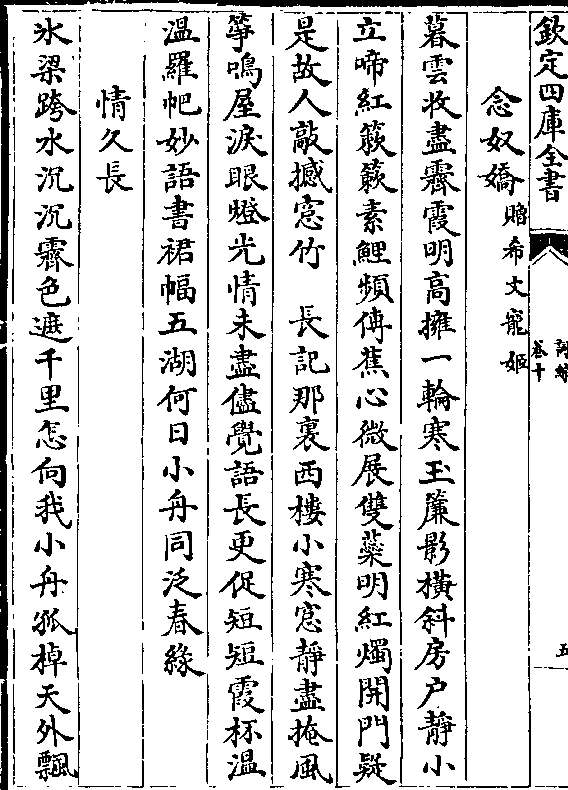 欽定四庫全書
詞綜
卷十
五
念奴嬌 贈希文寵姬
暮雲收盡霽霞明高擁一輪寒玉簾影橫斜房户靜小
立啼紅蔌蔌素鯉頻傳蕉心微展雙蘂明紅燭開門疑
是故人敲撼窓竹 長記那裏西樓小寒窓靜盡掩風
箏鳴屋淚眼燈光情未盡儘覺語長更促短短霞杯温
温羅帊妙語書裙幅五湖何日小舟同泛春緑
情久長
氷梁跨水沉沉霽色遮千里怎向我小舟孤棹天外飄